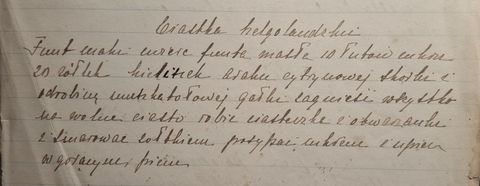 Ciastka helgolandzki
Funt mąki ćwierć funta masła 10 łutów cukru
20 żółtek kieliszek araku cytrynowej skórki i
odrobinę muszkatołowej gałki zagnieść wszystko
na wolne ciasto robić ciasteczka i obwarzanki
i smarować żółtkiem posypać cukrem i upiec
w gorącym piecu